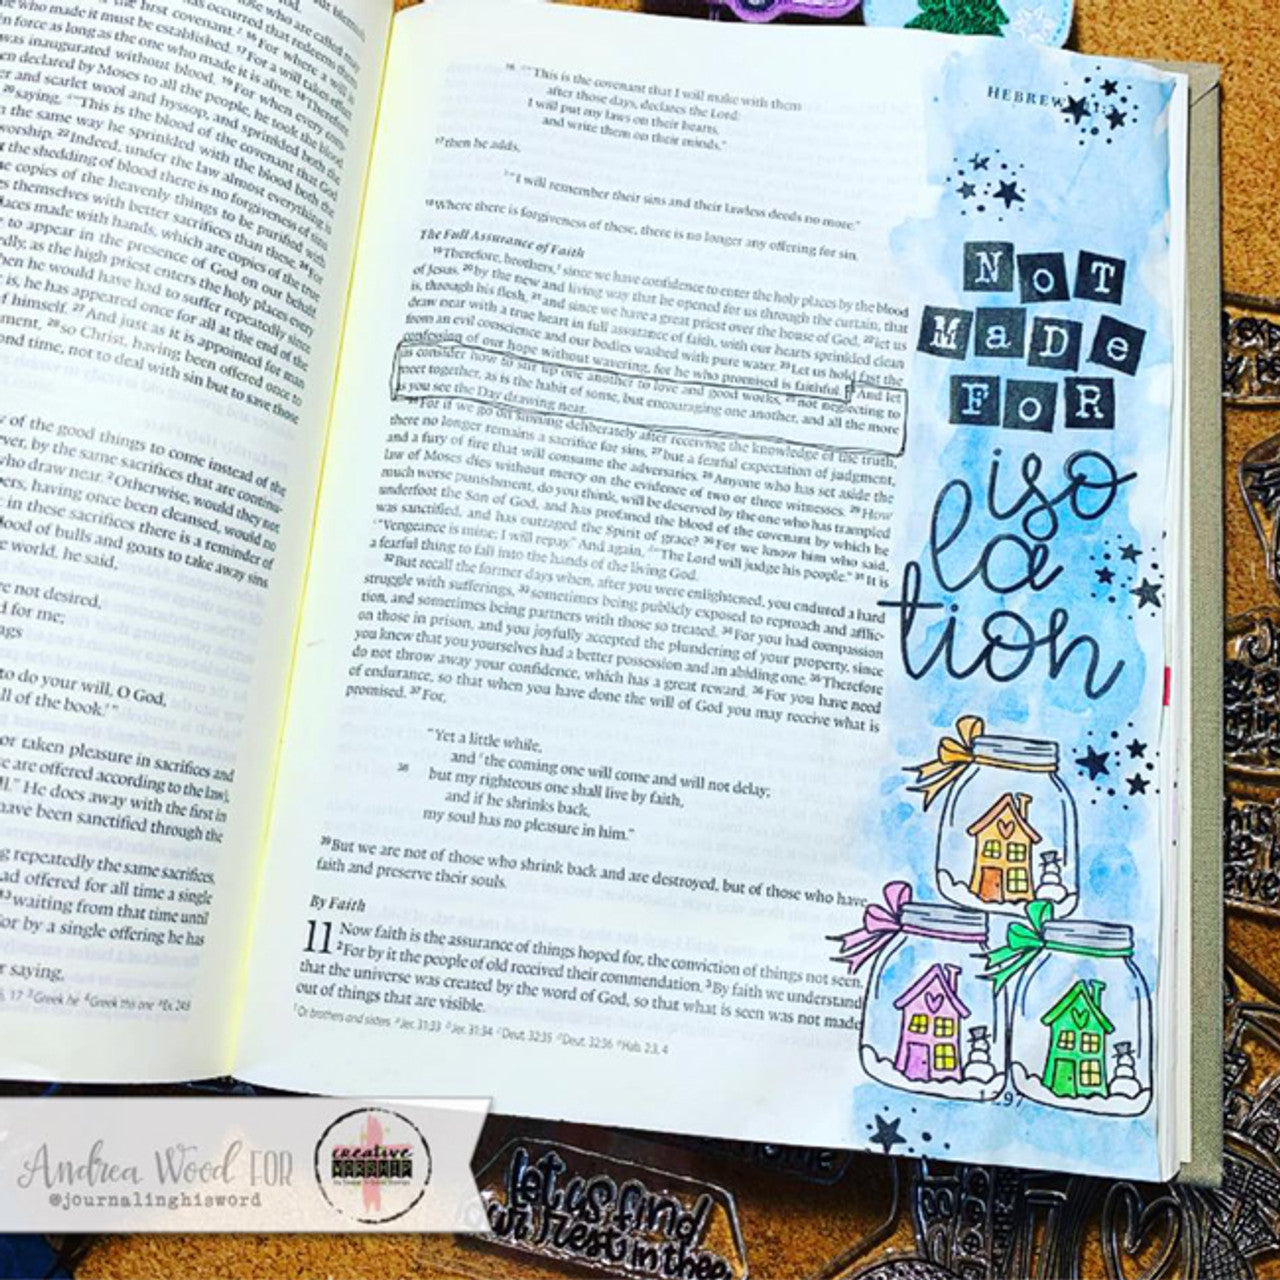 who made it must be established. ¹⁷For a will takes effect
was inaugurated without blood. ¹⁹For when every com-
en declared by Moses to all the people, he took the blood
er and scarlet wool and hyssop, and sprinkled both the
²⁰saying, "This is the blood of the covenant that God
n the same way he sprinkled with the blood both the
worship. ²²Indeed, under the law almost everything is
the shedding of blood there is no forgiveness of sins.
e copies of the heavenly things to be purified with
themselves with better sacrifices than these. ²⁴For
laces made with hands, which are copies of the true
to appear in the presence of God on our behalf.
edly, as the high priest enters the holy places every
hen he would have had to suffer repeatedly since
is, he has appeared once for all at the end of the
f himself. ²⁷And just as it is appointed for man
ment, ²⁸so Christ, having been offered once to
ond time, not to deal with sin but to save those
y of the good things to come instead of the
ver, by the same sacrifices that are continua-
who draw near. ²Otherwise, would they not
pers, having once been cleansed, would no
in these sacrifices there is a reminder of
lood of bulls and goats to take away sins
e world, he said,
re not desired,
d for me;
ngs
to do your will, O God,
ll of the book.'"
or taken pleasure in sacrifices and
e are offered according to the law),
ll." He does away with the first in
have been sanctified through the
g repeatedly the same sacrifices,
ad offered for all time a single
¹³waiting from that time until
or by a single offering he has
r saying,
17 ³Greek he ⁴Greek this one ⁶Ex. 24:8
HEBREWS
¹⁶ "This is the covenant that I will make with them
after those days, declares the Lord:
I will put my laws on their hearts,
and write them on their minds,"
¹⁷then he adds,
"I will remember their sins and their lawless deeds no more."
¹⁸Where there is forgiveness of these, there is no longer any offering for sin.
The Full Assurance of Faith
¹⁹Therefore, brothers,¹ since we have confidence to enter the holy places by the blood
of Jesus, ²⁰by the new and living way that he opened for us through the curtain, that
is, through his flesh, ²¹and since we have a great priest over the house of God, ²²let us
draw near with a true heart in full assurance of faith, with our hearts sprinkled clean
from an evil conscience and our bodies washed with pure water. ²³Let us hold fast the
confession of our hope without wavering, for he who promised is faithful. ²⁴And let
us consider how to stir up one another to love and good works, ²⁵not neglecting to
meet together, as is the habit of some, but encouraging one another, and all the more
as you see the Day drawing near.
²⁶For if we go on sinning deliberately after receiving the knowledge of the truth,
there no longer remains a sacrifice for sins, ²⁷but a fearful expectation of judgment,
and a fury of fire that will consume the adversaries. ²⁸Anyone who has set aside the
law of Moses dies without mercy on the evidence of two or three witnesses. ²⁹How
much worse punishment, do you think, will be deserved by the one who has trampled
underfoot the Son of God, and has profaned the blood of the covenant by which he
was sanctified, and has outraged the Spirit of grace? ³⁰For we know him who said,
"Vengeance is mine; I will repay." And again, "The Lord will judge his people." ³¹It is
a fearful thing to fall into the hands of the living God.
³²But recall the former days when, after you were enlightened, you endured a hard
struggle with sufferings, ³³sometimes being publicly exposed to reproach and afflic-
tion, and sometimes being partners with those so treated. ³⁴For you had compassion
on those in prison, and you joyfully accepted the plundering of your property, since
you knew that you yourselves had a better possession and an abiding one. ³⁵Therefore
do not throw away your confidence, which has a great reward. ³⁶For you have need
of endurance, so that when you have done the will of God you may receive what is
promised. ³⁷For,
"Yet a little while,
and the coming one will come and will not delay;
³⁸ but my righteous one shall live by faith,
and if he shrinks back,
my soul has no pleasure in him."
³⁹But we are not of those who shrink back and are destroyed, but of those who have
faith and preserve their souls.
By Faith
11 Now faith is the assurance of things hoped for, the conviction of things not seen.
²For by it the people of old received their commendation. ³By faith we understand
that the universe was created by the word of God, so that what is seen was not made
out of things that are visible.
¹Or brothers and sisters Jer. 31:33 Jer. 31:34 Deut. 32:35 Deut. 32:36 Hab. 2:3, 4
NOT
MaDe
FoR
iso
la
tion
1297
Andrea Wood FOR
@journalinghisword
creative
WORSHIP
let us find
our rest in thee
HOME